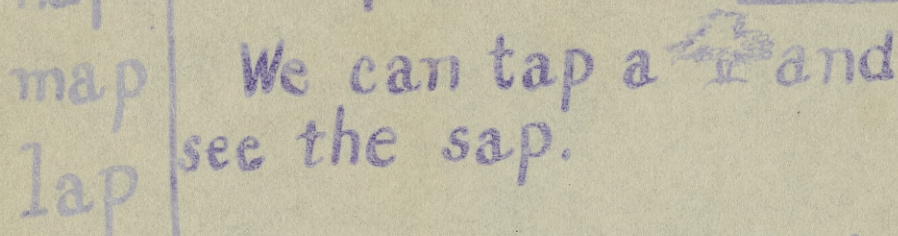 map
lap
We can tap a and
see the sap.